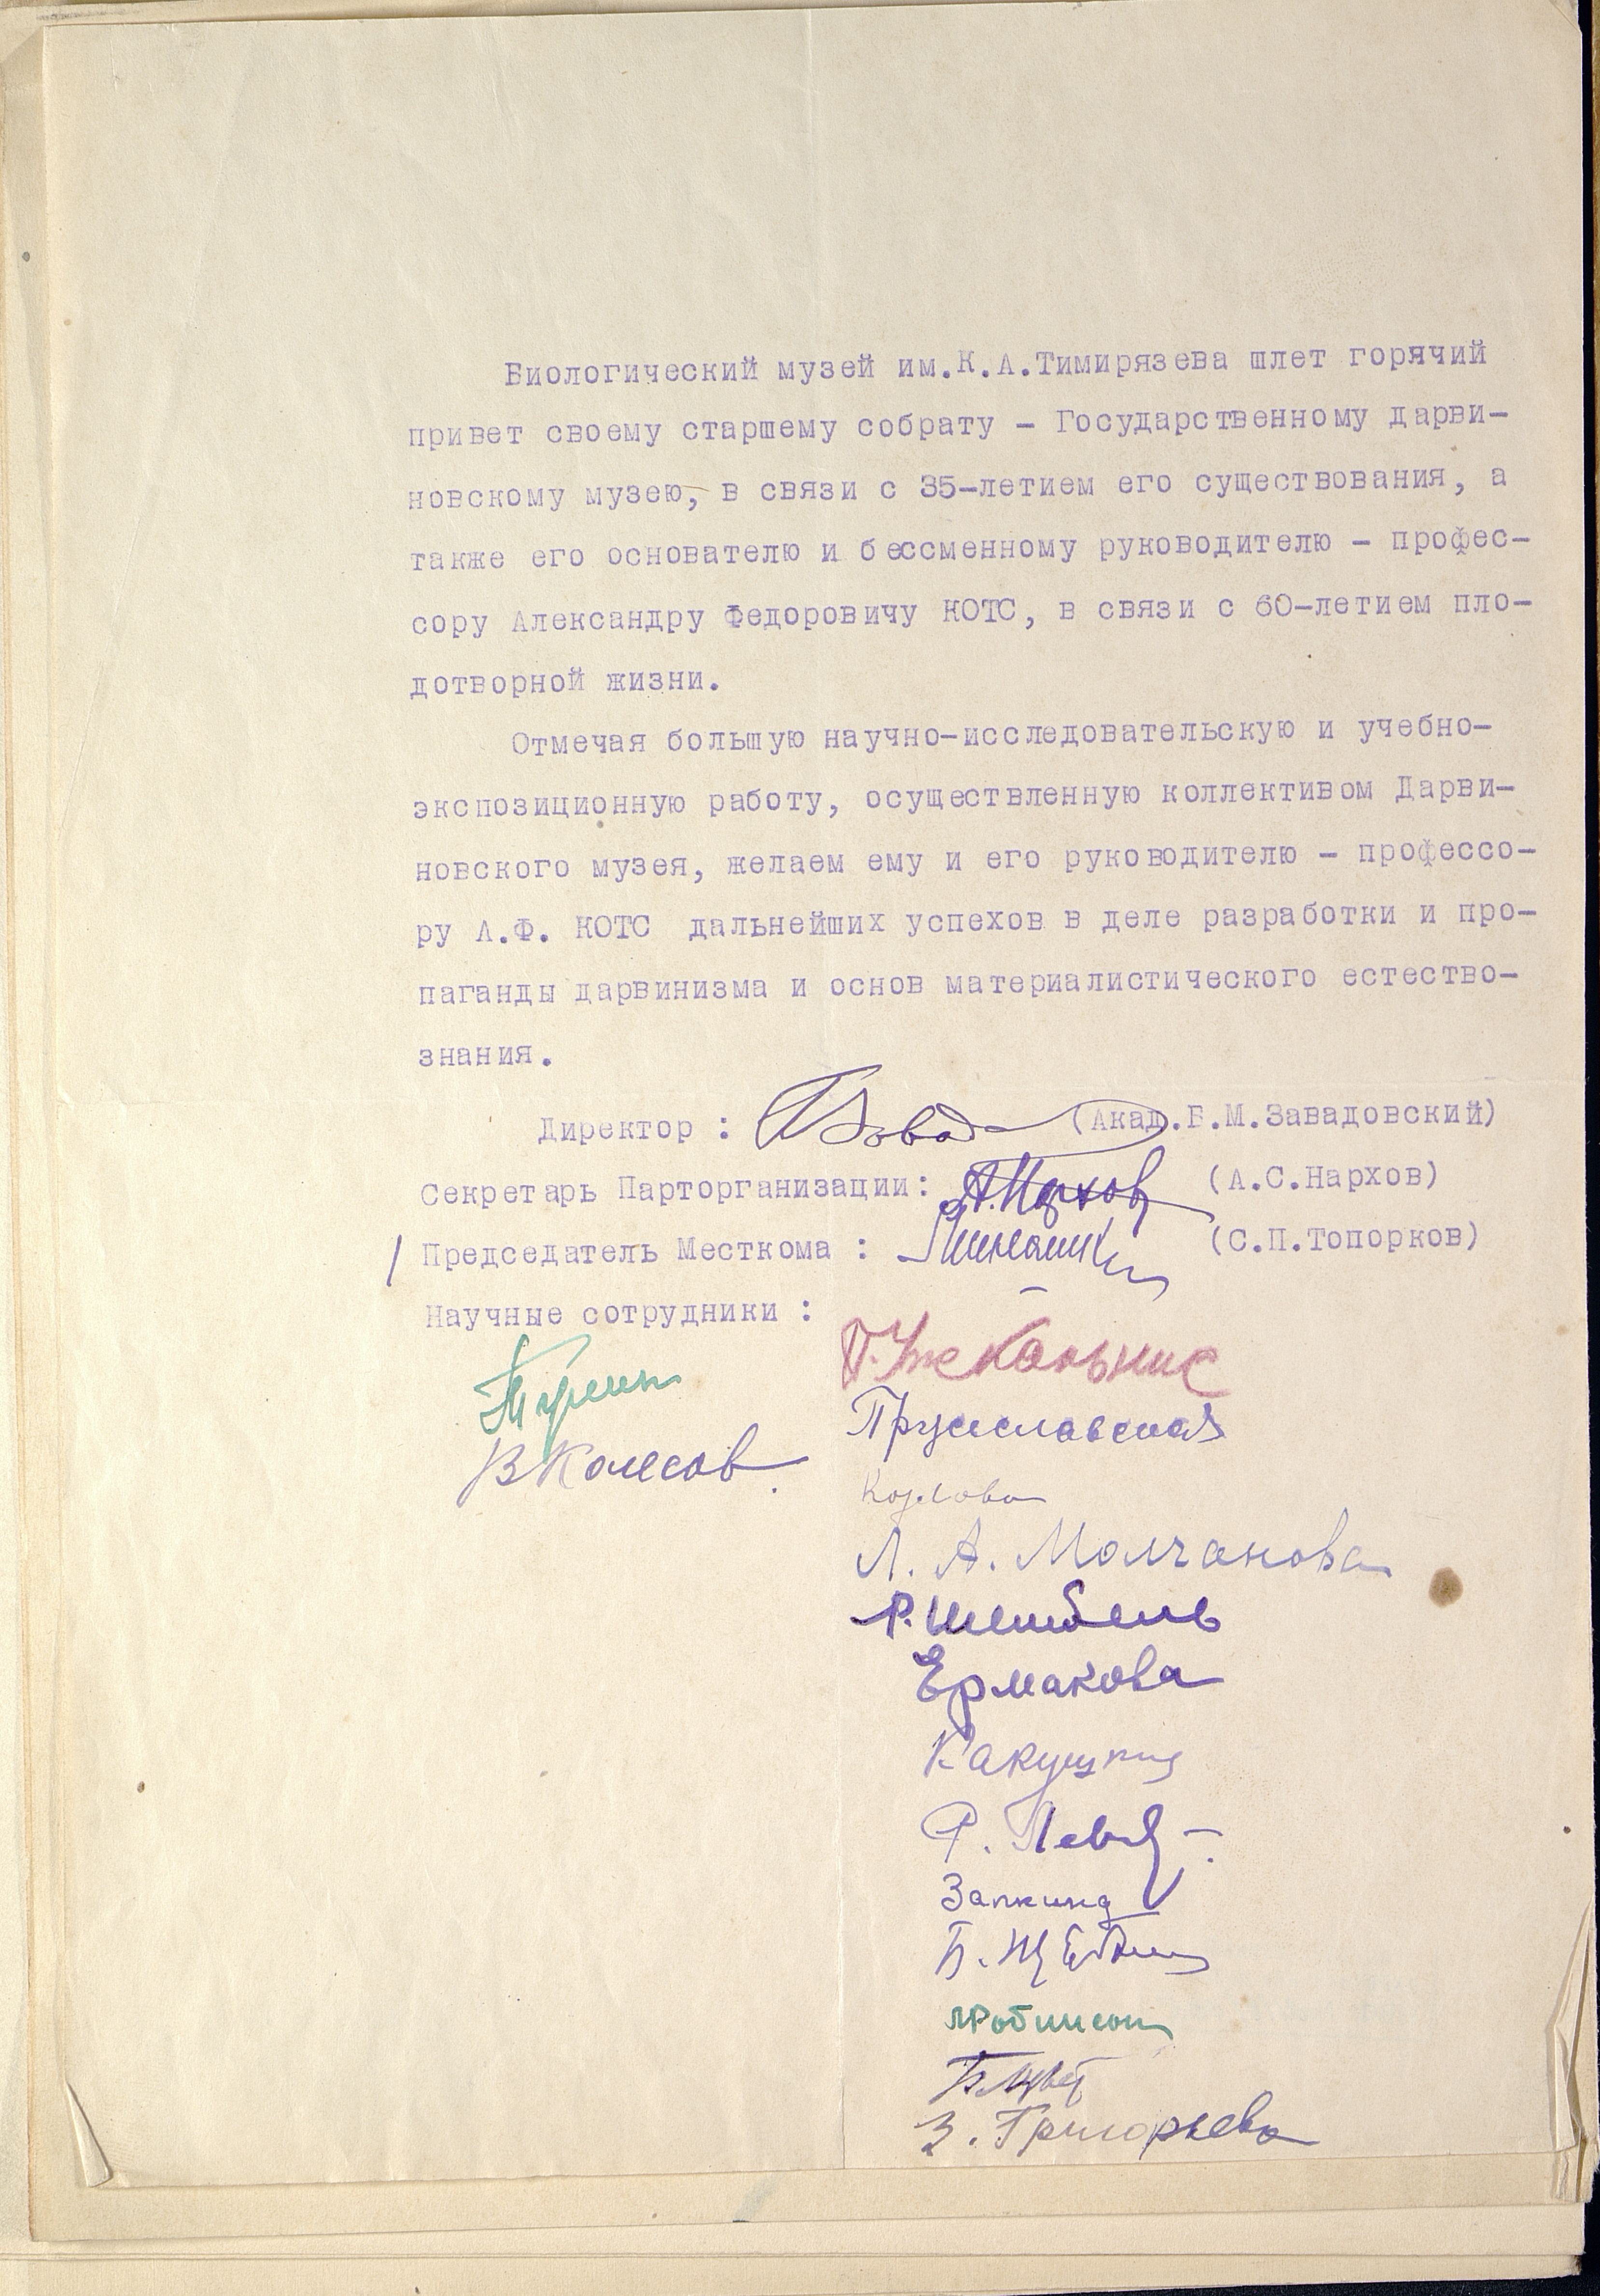 Биологический музей им.К.А.Тимирязева шлет горячий
привет своему старшему собрату – Государственному дарви-
новскому музею, в связи с 35-летием его существования, а
также его основателю и бессменному руководителю – профес-
сору Александру Федоровичу КОТС, в связи с 60-летием пло-
дотворной жизни.
Отмечая большую научно-исследовательскую и учебно-
экспозиционную работу, осуществленную коллективом Дарви-
новского музея, желаем ему и его руководителю – профессо-
ру А.Ф. КОТС дальнейших успехов в деле разработки и про-
паганды дарвинизма и основ материалистического естество-
знания.
Директор : (Акад.Б.М.Завадовский)
Секретарь Парторганизации: А.Нархов (А.С.Нархов)
Председатель Месткома : (С.П.Топорков)
Научные сотрудники :
В Колесов
Козлова
Л. А. Молчанова
Р.
Ермакова
Р.
Б.
Робинсон
З. Григорьева